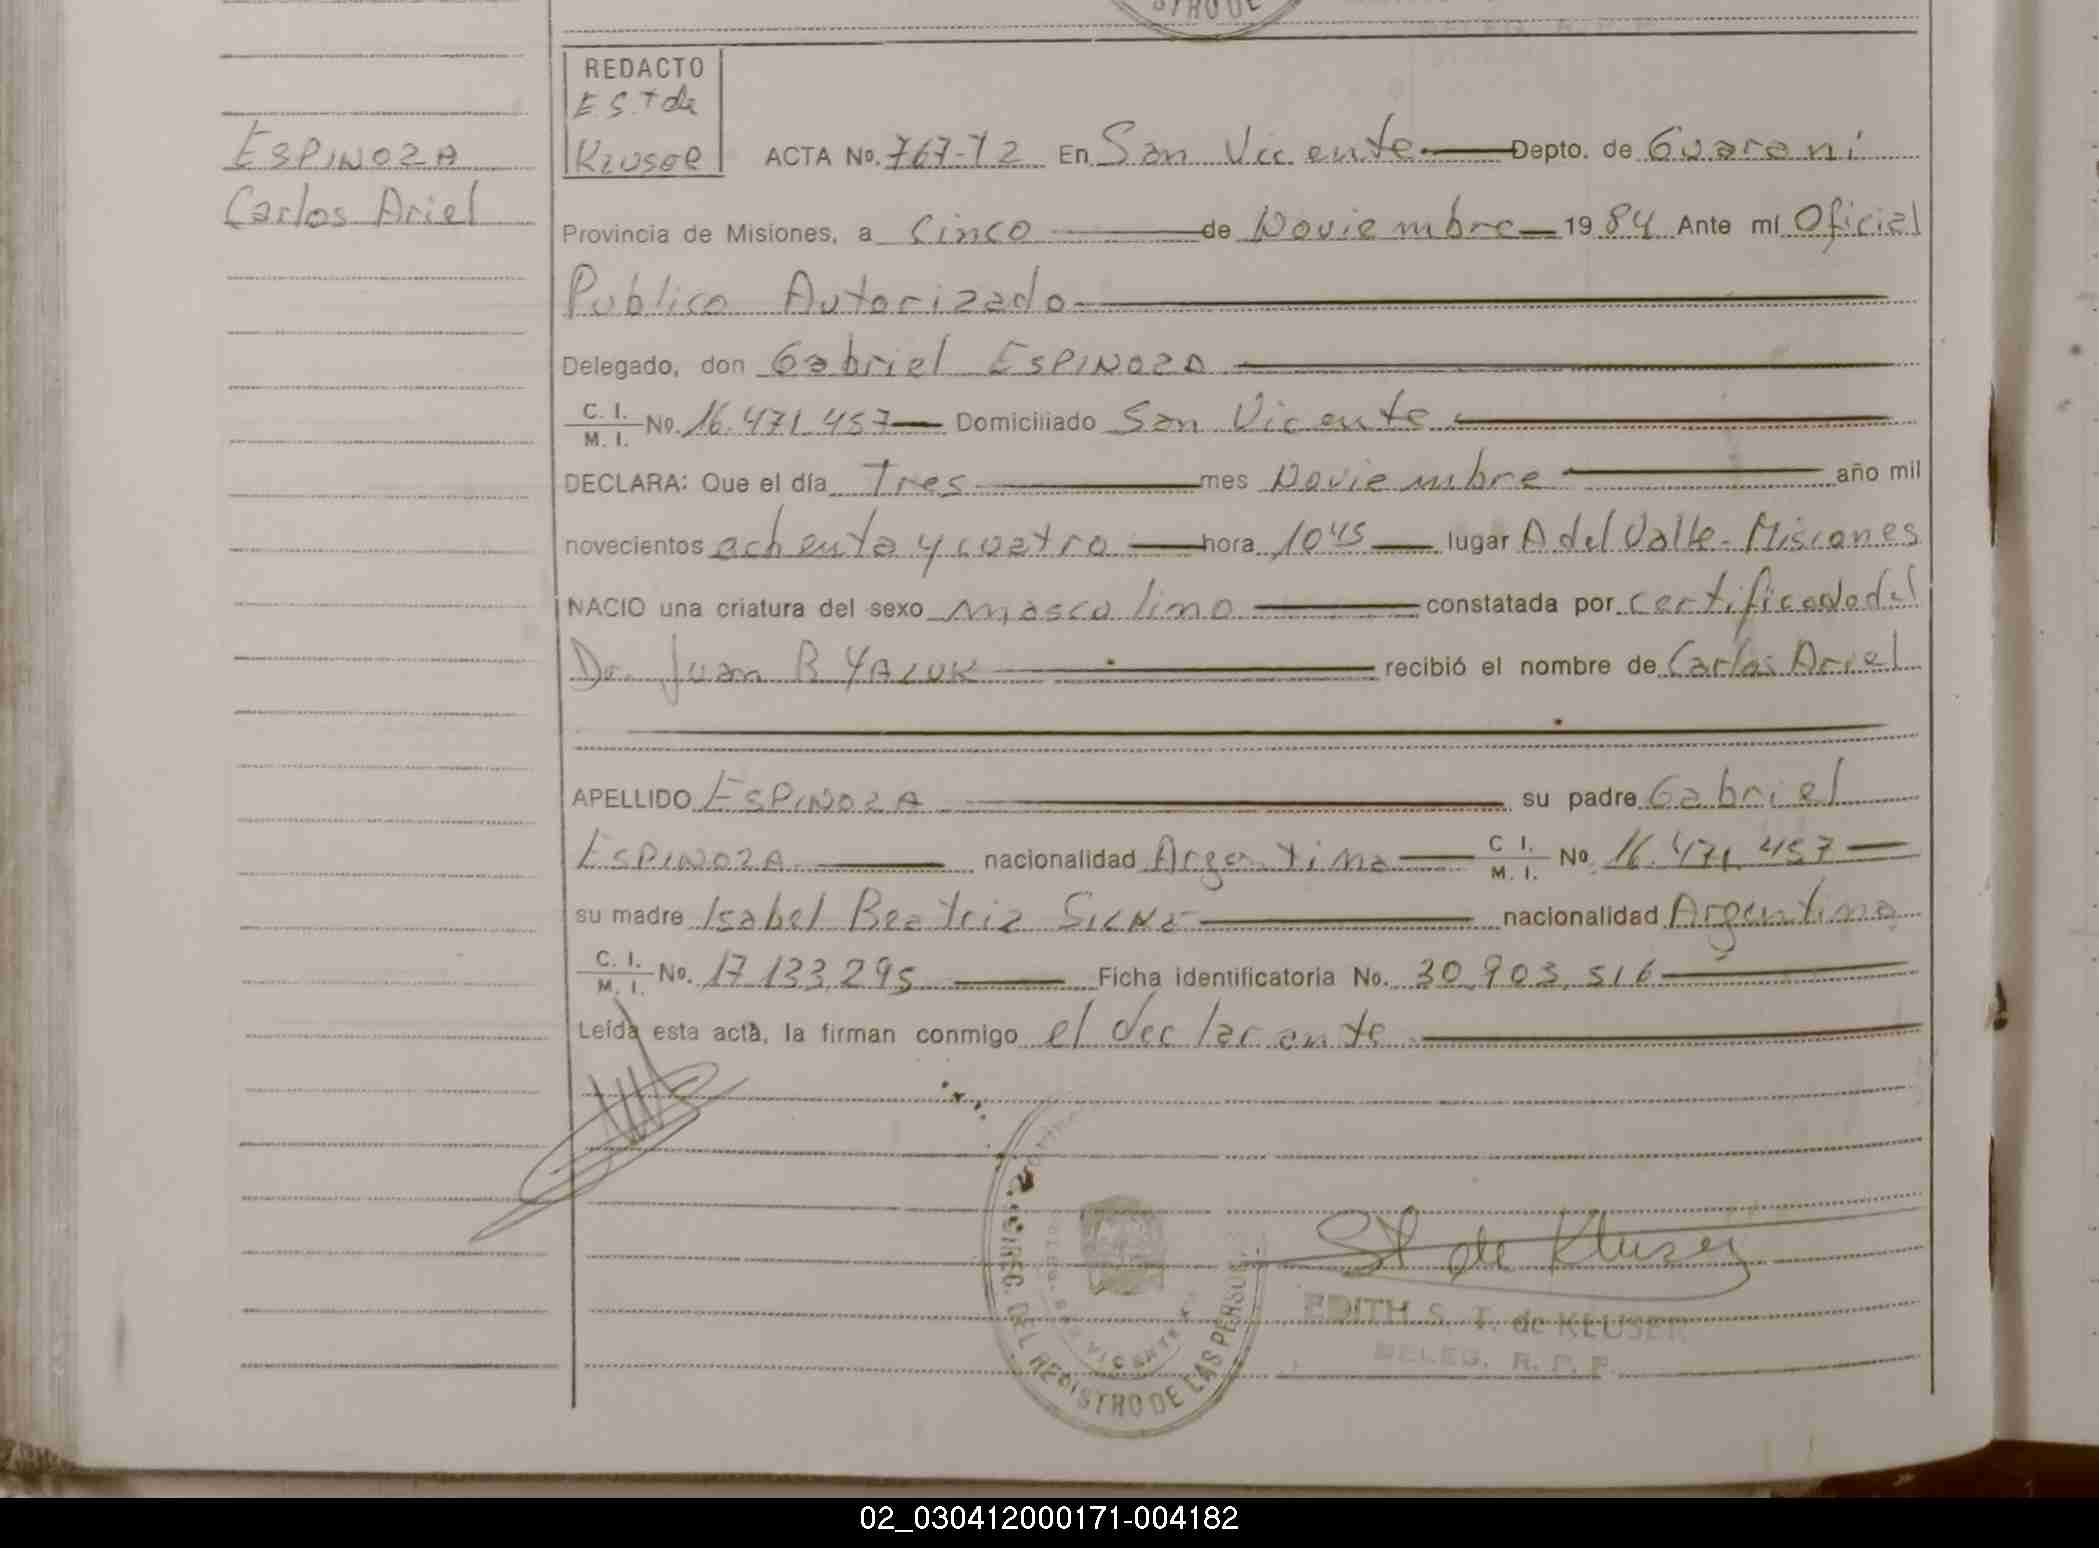 STRO DE
REDACTO
E S. T de
Kluser
ESPINOZA
Carlos Ariel
ACTA No. 767-T2 En San Vicente Depto. de Guarani
Provincia de Misiones, a Cinco de Noviembre 1984 Ante mí Oficial
Publico Autorizado
Delegado, don Gabriel ESPINOZA
C. I.
M. I. No. 16.471.457 Domiciliado San Vicente
DECLARA: Que el día Tres mes Noviembre año mil
novecientos ochenta y cuatro hora 10 45 lugar A del Valle - Misiones
NACIO una criatura del sexo masculino constatada por certificado del
Dr. Juan R YALUK recibió el nombre de Carlos Ariel
APELLIDO ESPINOZA su padre Gabriel
ESPINOZA nacionalidad Argentina C I.
M. I. No 16.471.457
su madre Isabel Beatriz nacionalidad Argentina
C. I.
M. I. No. 17.133.295 Ficha identificatoria No. 30.903.516
Leída esta acta, la firman conmigo el declarante
ST de Kluser
EDITH S. T. de KLUSER
DELEG. R. P. P.
DIREC. DEL REGISTRO DE LAS PERSON
VICENTE
02_030412000171-004182